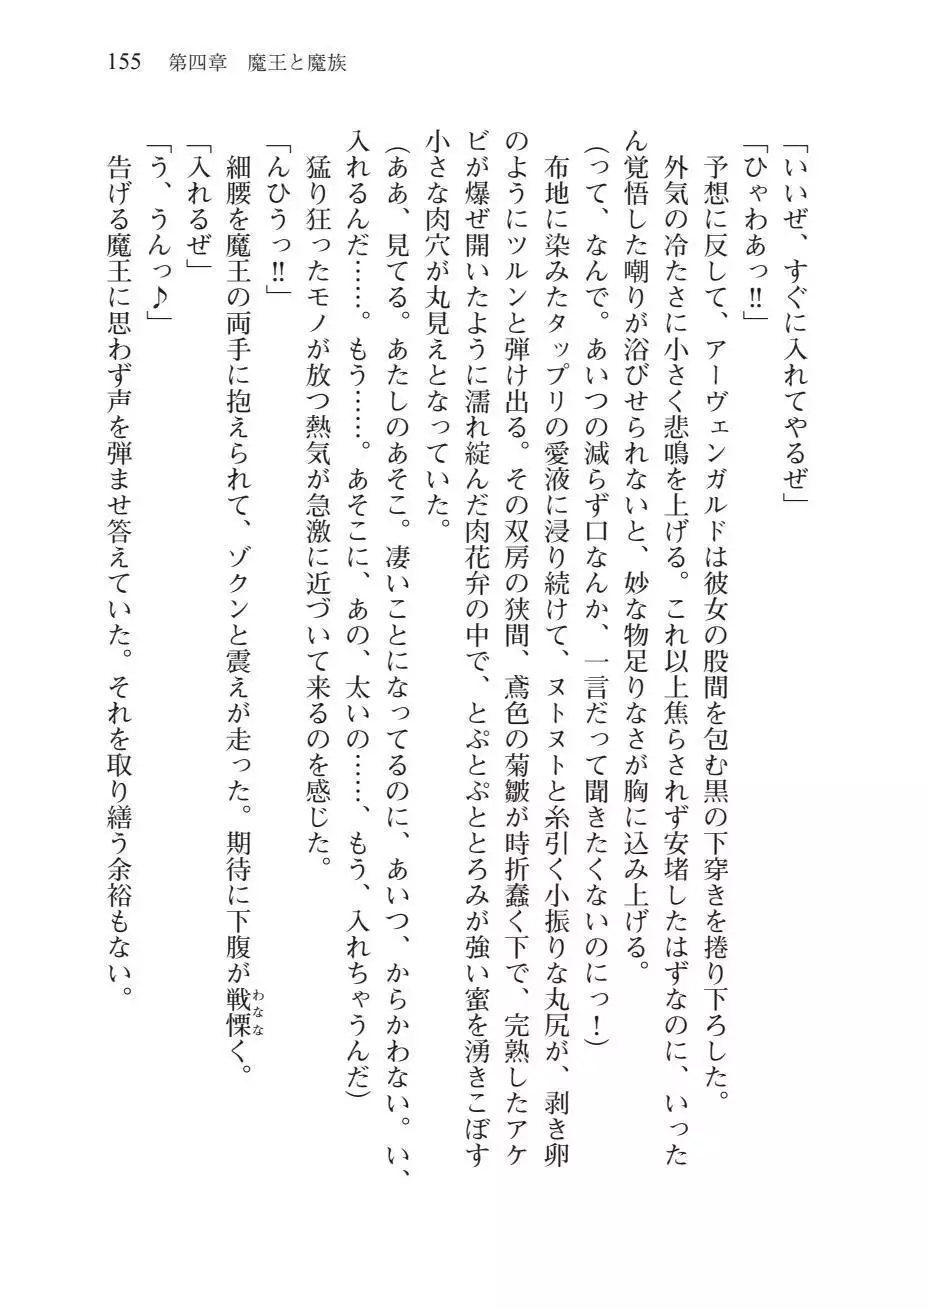 155　第四章　魔王と魔族
「いいぜ、すぐに入れてやるぜ」
「ひゃわあっ‼」
　予想に反して、アーヴェンガルドは彼女の股間を包む黒の下穿きを捲り下ろした。
　外気の冷たさに小さく悲鳴を上げる。これ以上焦らされず安堵したはずなのに、いった
ん覚悟した嘲りが浴びせられないと、妙な物足りなさが胸に込み上げる。
（って、なんで。あいつの減らず口なんか、一言だって聞きたくないのにっ！）
　布地に染みたタップリの愛液に浸り続けて、ヌトヌトと糸引く小振りな丸尻が、剥き卵
のようにツルンと弾け出る。その双房の狭間、鳶色の菊皺が時折蠢く下で、完熟したアケ
ビが爆ぜ開いたように濡れ綻んだ肉花弁の中で、とぷとぷととろみが強い蜜を湧きこぼす
小さな肉穴が丸見えとなっていた。
（ああ、見てる。あたしのあそこ。凄いことになってるのに、あいつ、からかわない。い、
入れるんだ……。もう……。あそこに、あの、太いの……、もう、入れちゃうんだ）
　猛り狂ったモノが放つ熱気が急激に近づいて来るのを感じた。
「んひうっ‼」
　細腰を魔王の両手に抱えられて、ゾクンと震えが走った。期待に下腹が戦慄く。
わなな
「入れるぜ」
「う、うんっ♪」
　告げる魔王に思わず声を弾ませ答えていた。それを取り繕う余裕もない。